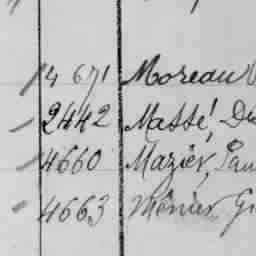 4671 Moreau
2442 Massé,
4660 Mazier, Pau
4663 Ménier, G